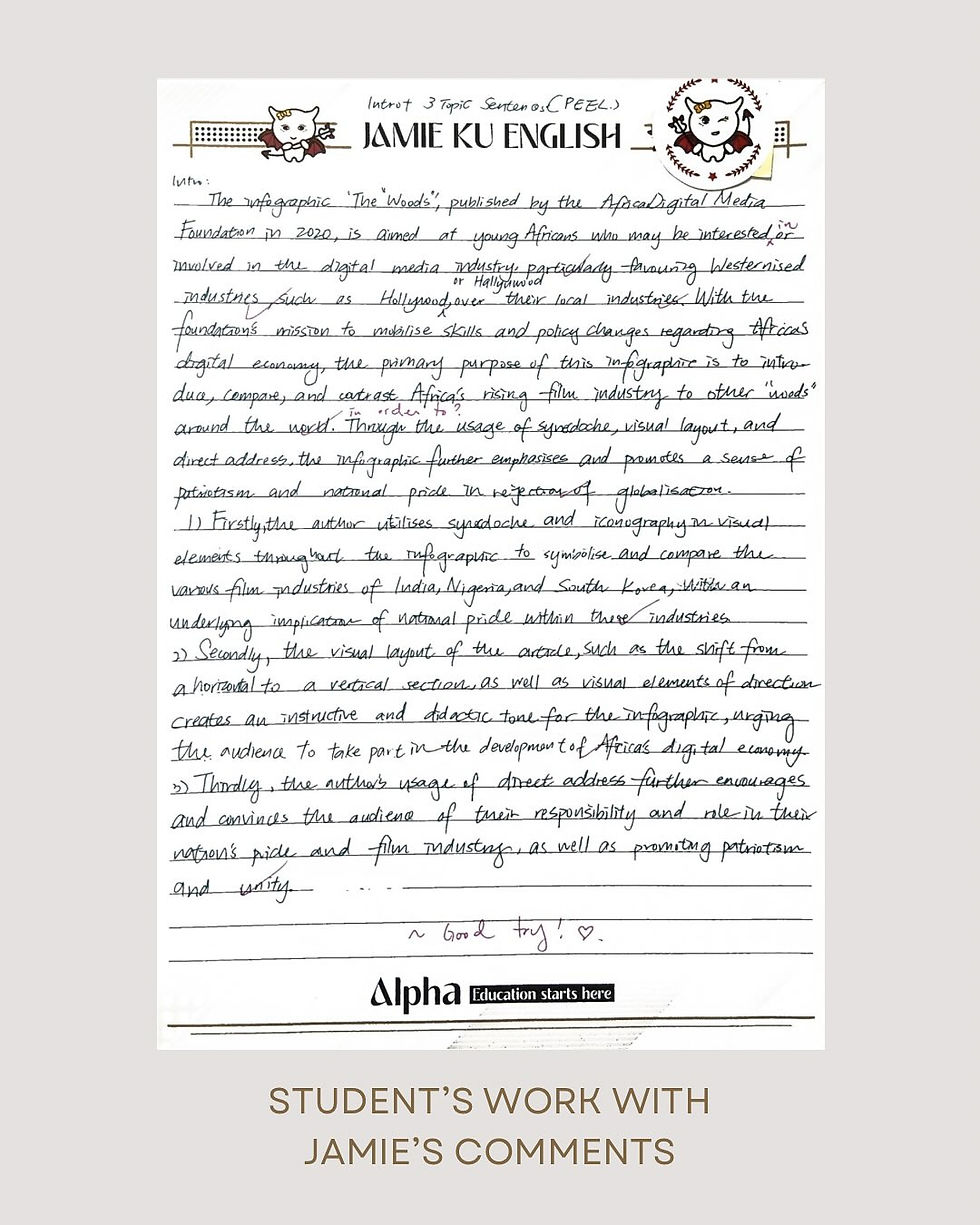 Intro + 3 Topic Sentences (PEEL.)
JAMIE KU ENGLISH
Intro:
The infographic 'The "Woods", published by the Africa Digital Media
Foundation in 2020, is aimed at young Africans who may be interested in or
involved in the digital media industry, particularly favouring Westernised
or Hallyuwood
industries such as Hollywood, over their local industries. With the
foundation's mission to mobilise skills and policy changes regarding Africa's
digital economy, the primary purpose of this infographic is to intro-
duce, compare, and contrast Africa's rising film industry to other "woods"
in order to?
around the world. Through the usage of synecdoche, visual layout, and
direct address, the infographic further emphasises and promotes a sense of
patriotism and national pride in rejection of globalisation.
1) Firstly, the author utilises synecdoche and iconography in visual
elements throughout the infographic to symbolise and compare the
various film industries of India, Nigeria, and South Korea, with an
underlying implication of national pride within these industries
2) Secondly, the visual layout of the article, such as the shift from
a horizontal to a vertical section, as well as visual elements of direction
creates an instructive and didactic tone for the infographic, urging
the audience to take part in the development of Africa's digital economy.
3) Thirdly, the author's usage of direct address further encourages
and convinces the audience of their responsibility and role in their
nation's pride and film industry, as well as promoting patriotism
and unity.
~ Good try! ♡.
Alpha Education starts here
STUDENT'S WORK WITH
JAMIE'S COMMENTS